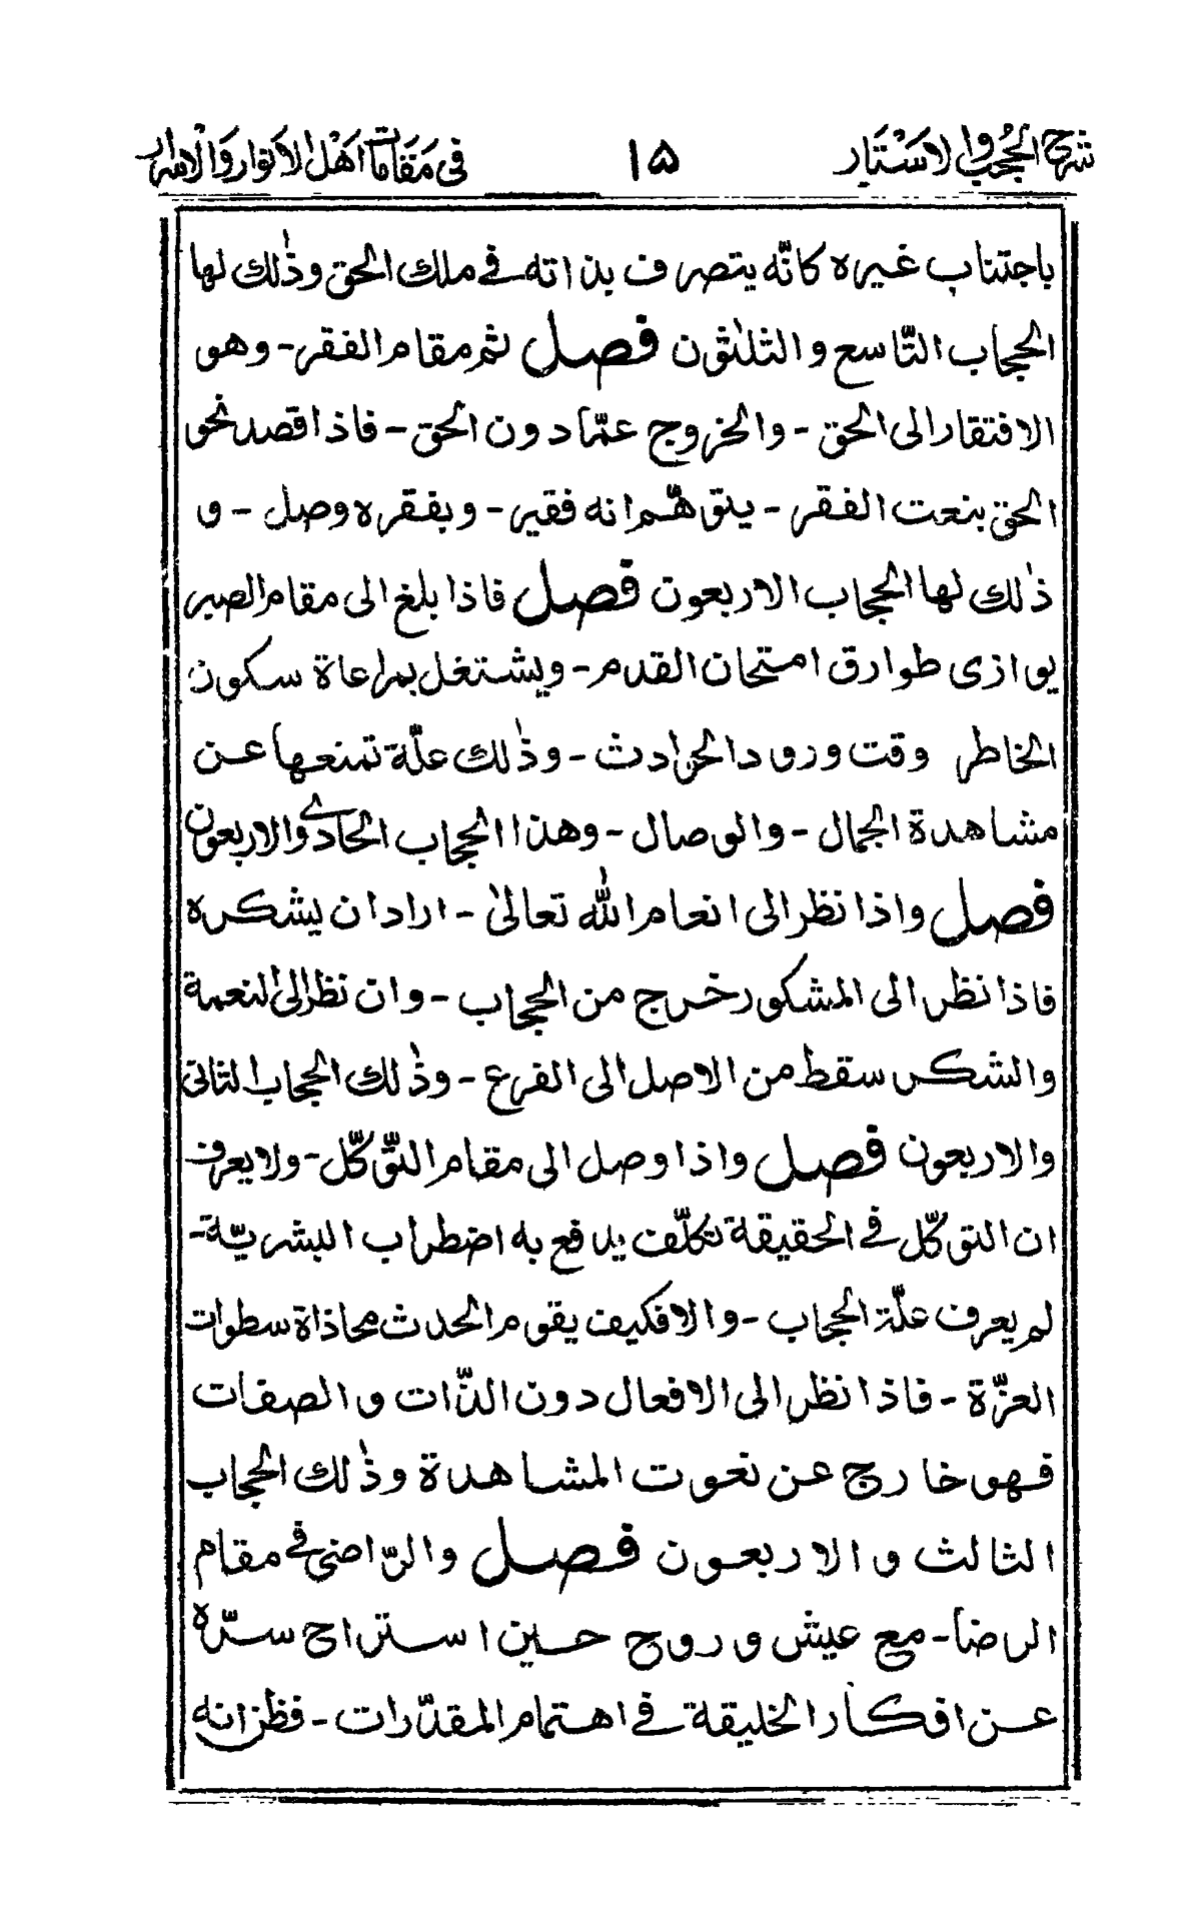 شرح الحُجُب والاَسْتَار ١٥ فى مَقَامَات اَهْل الاَنوار وَالْاسْرار
باجتناب غيره كانّه يتصرف بذاته فے ملك الحق وذٰلك لها
الحجاب التّاسع والثلٰثون فصل ثم مقام الفقر - وهو
الافتقار الى الحق - والخروج عمّا دون الحق - فاذا قصد نحو
الحق بنعت الفقر - يتوهّم انه فقير - وبفقره وصل - و
ذٰلك لها الحجاب الاربعون فصل فاذا بلغ الى مقام الصبر
يوازى طوارق امتحان القدم - ويشتغل بمراعاة سكون
الخاطر وقت ورود الحوادث - وذٰلك علّة تمنعها عن
مشاهدة الجمال - والوصال - وهذا الحجاب الحادے والاربعون
فصل واذا نظر الى انعام اللّٰه تعالىٰ - اراد ان يشكره
فاذا نظر الى المشكور خرج من الحجاب - وان نظر الى النعمة
والشكر سقط من الاصل الى الفرع - وذٰلك الحجاب الثانى
والاربعون فصل واذا وصل الى مقام التّوكّل - ولا يعرف
ان التوكّل فے الحقيقة تكلّف يدافع به اضطراب البشريّة -
لم يعرف علّة الحجاب - والا فكيف يقوم الحدث محاذاة سطوات
العزّة - فاذا نظر الى الافعال دون الذّات والصفات
فهو خارج عن نعوت المشاهدة وذٰلك الحجاب
الثالث والاربعون فصل والرّاضى فے مقام
الرضا - مع عيش وروح حين استراح سرّه
عن افكار الخليقة فے اهتمام المقدّرات - فظن انه